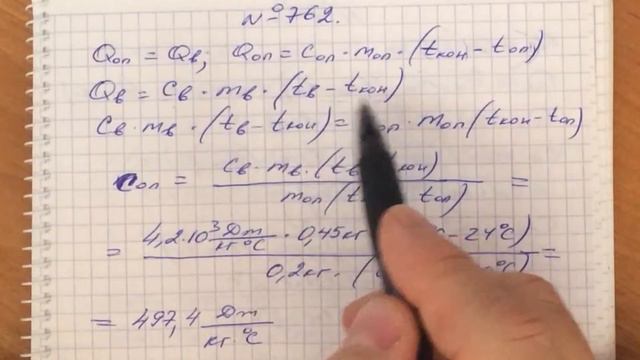 №762.
Qоп = Qв; Qоп = Cоп · mоп · (tкон – tоп)
Qв = Cв · mв · (tв – tкон)
Cв · mв · (tв – tкон) = оп · mоп (tкон – tоп)
Cоп = Cв · mв · (t кон) / mоп (t tоп) =
= 4,2·10³ Дж/кг°C · 0,45кг – 24°C) / 0,2кг · ( °C) =
= 497,4 Дж/кг °C